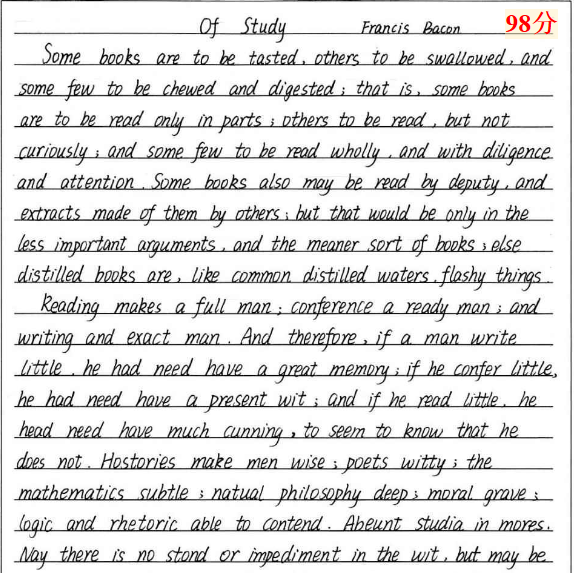 Of Study Francis Bacon 98分
Some books are to be tasted, others to be swallowed, and
some few to be chewed and digested; that is, some books
are to be read only in parts; others to be read, but not
curiously; and some few to be read wholly, and with diligence
and attention. Some books also may be read by deputy, and
extracts made of them by others; but that would be only in the
less important arguments, and the meaner sort of books; else
distilled books are, like common distilled waters, flashy things.
Reading makes a full man; conference a ready man; and
writing and exact man. And therefore, if a man write
little, he had need have a great memory; if he confer little,
he had need have a present wit; and if he read little, he
head need have much cunning, to seem to know that he
does not. Hostories make men wise; poets witty; the
mathematics subtle; natual philosophy deep; moral grave;
logic and rhetoric able to contend. Abeunt studia in mores.
Nay there is no stond or impediment in the wit, but may be